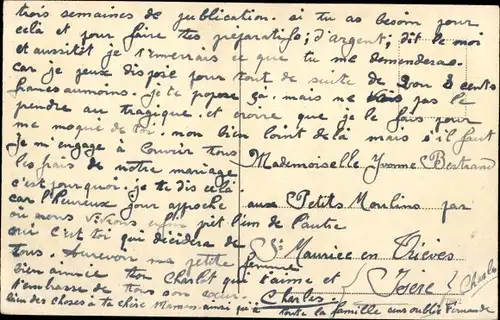 trois semaines de publication. si tu as besoin pour
celà et pour faire tes préparatifs; d'argent, dit le moi
et aussitôt je t'enverrais ce que tu me demanderas.
car je peux disposé pour tout de suite de 2 ou 3 cents
francs au moins. je te propose ça. mais ne vas pas le
prendre au tragique. et croire que je le fais pour
me moqué de toi. non bien loint de là mais s'il faut
je m'engage à couvrir tous
les frais de notre mariage
c'est pourquoi. je te dis celà.
car l'heureux jour approche
où nous vivrons enfin près l'un de l'autre
oui c'est toi qui décidera de
tous. Aurevoir ma petite femme
bien aimée ton Charlot qui t'aime et
t'embrasse de tous son cœur. Charles.
bien des choses à ta chère Maman ainsi qu'à toute la famille sans oublier Fernande
Mademoiselle Yvonne Bertrand
aux Petits Moulins par
St Maurice en Trièves
Isère
Charles